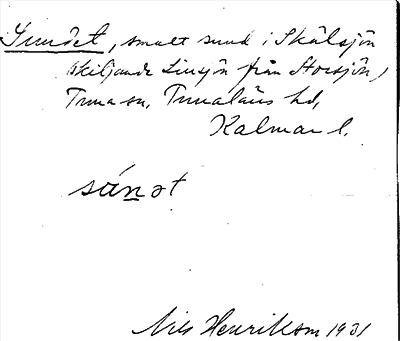 Sundet, smalt sund i Skälsjön
skiljande Linsjön från Horsjön,
Tuna sn, Tunaläns hd,
Kalmar l.
súnət
Nils Henrikson 1931